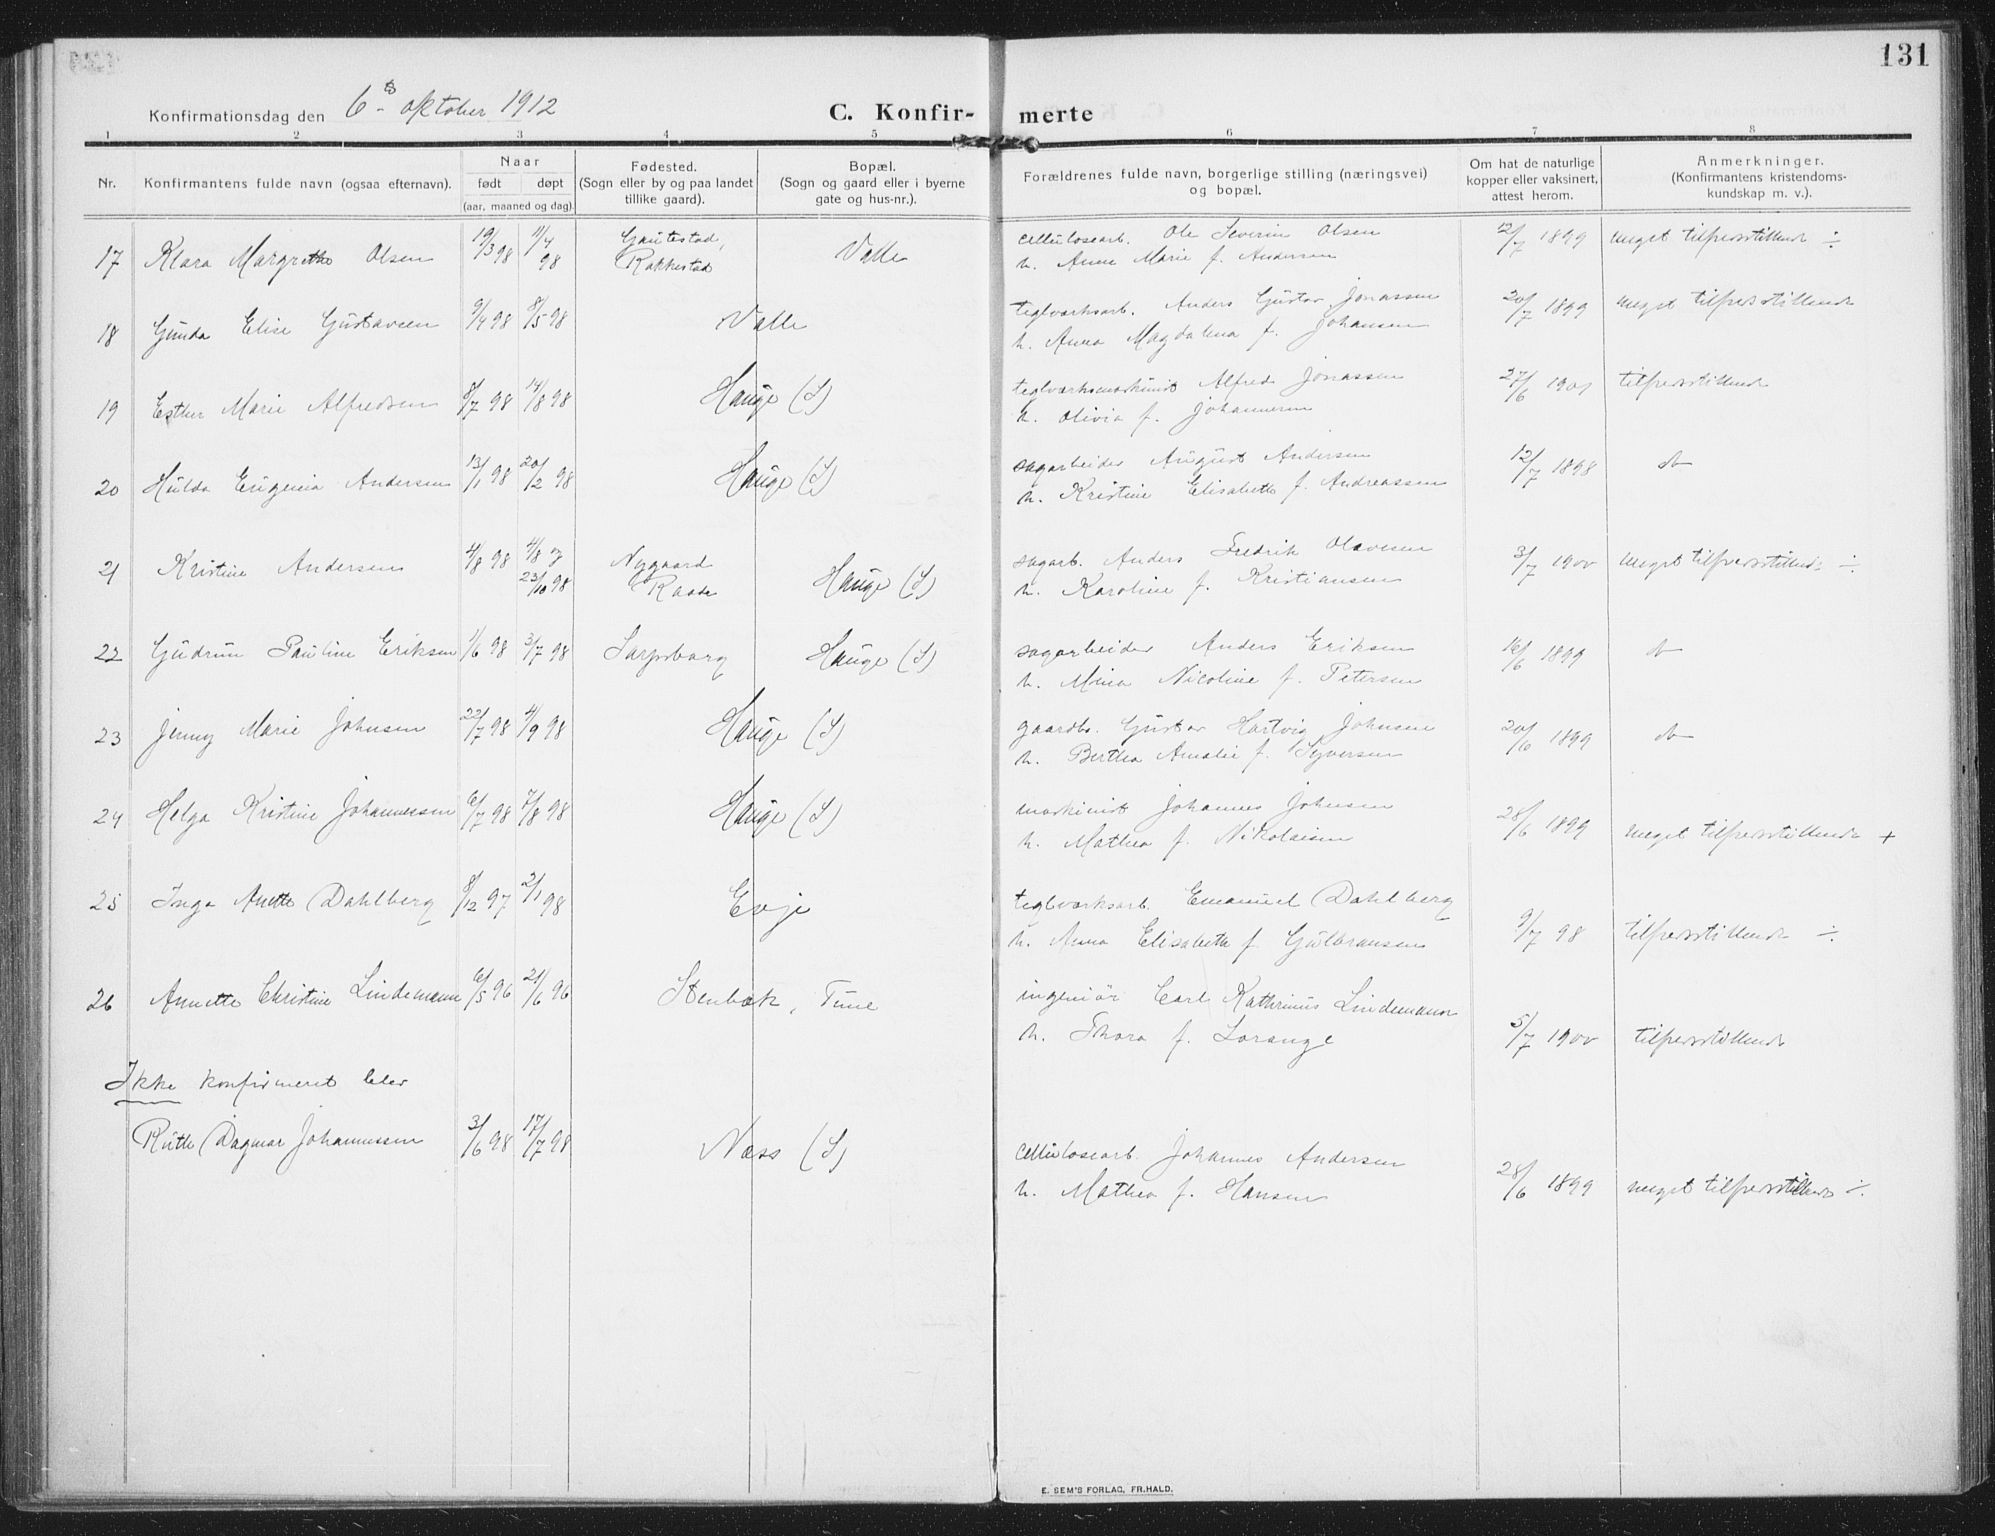 131
Konfirmationsdag den 6te oktober 1912
C. Konfir- merte
1 2 3 4 5 6 7 8
Nr. Konfirmantens fulde navn (ogsaa efternavn). Naar født døpt (aar, maaned og dag). Fødested. (Sogn eller by og paa landet tillike gaard). Bopæl. (Sogn og gaard eller i byerne gate og hus-nr.). Forældrenes fulde navn, borgerlige stilling (næringsvei) og bopæl. Om hat de naturlige kopper eller vaksinert, attest herom. Anmerkninger. (Konfirmantens kristendoms- kundskap m. v.).
17 Klara Margrethe Olsen 19/3 98 11/4 98 Gautestad, Rakkestad Valle cellulosearb. Ole Severin Olsen 12/7 1899 meget tilfredsstillende ÷
h. Anne Marie f. Andersen
18 Gunda Elise Gustavsen 9/4 98 8/5 98 Valle teglverksarb. Anders Gustav Jonassen 20/7 1899 meget tilfredsstillende
h. Anna Magdalena f. Johansen
19 Esther Marie Alfredsen 8/7 98 14/8 98 Hauge (S) teglverksmaskinist Alfred Jonassen 27/6 1901 tilfredsstillende
h. Olivia f. Johannesen
20 Hulda Eugenia Andersen 13/1 98 20/2 98 Hauge (S) sagarbeider August Andersen 12/7 1898 do
h. Kristine Elisabeth f. Andreassen
21 Kristine Andersen 4/8 98 4/8 og 23/10 98 Nygaard Raade Hauge (S) sagarb. Anders Fredrik Olavesen 3/7 1900 meget tilfredsstillende ÷
h. Karoline f. Kristiansen
22 Gudrun Pauline Eriksen 1/6 98 3/7 98 Sarpsborg Hauge (S) sagarbeider Anders Eriksen 16/6 1899 do
h. Mina Nicoline f. Petersen
23 Jenny Marie Johnsen 22/7 98 4/9 98 Hauge (S) gaardbr. Gustav Hartvig Johnsen 20/6 1899 do
h. Bertha Amalie f. Syversen
24 Helga Kristine Johannessen 6/7 98 7/8 98 Hauge (S) maskinist Johannes Johnsen 28/6 1899 meget tilfredsstillende +
h. Mathea f. Nikolaisen
25 Inga Anette Dahlberg 8/12 97 2/1 98 Evje teglverksarb. Emanuel Dahlberg 9/7 98 tilfredsstillende ÷
h. Anna Elisabeth f. Gulbransen
26 Annette Christine Lindemann 6/5 96 21/6 96 Stenbæk, Tune ingeniør Carl Kathrinus Lindemann 5/7 1900 tilfredsstillende
h. Thora f. Lorange
Ikke konfirmeret blev
Ruth Dagmar Johannessen 3/6 98 17/7 98 Næss (S) cellulosearb. Johannes Andersen 28/6 1899 meget tilfredsstillende ÷
h. Mathea f. Hansen
E. SEM'S FORLAG, FR.HALD.